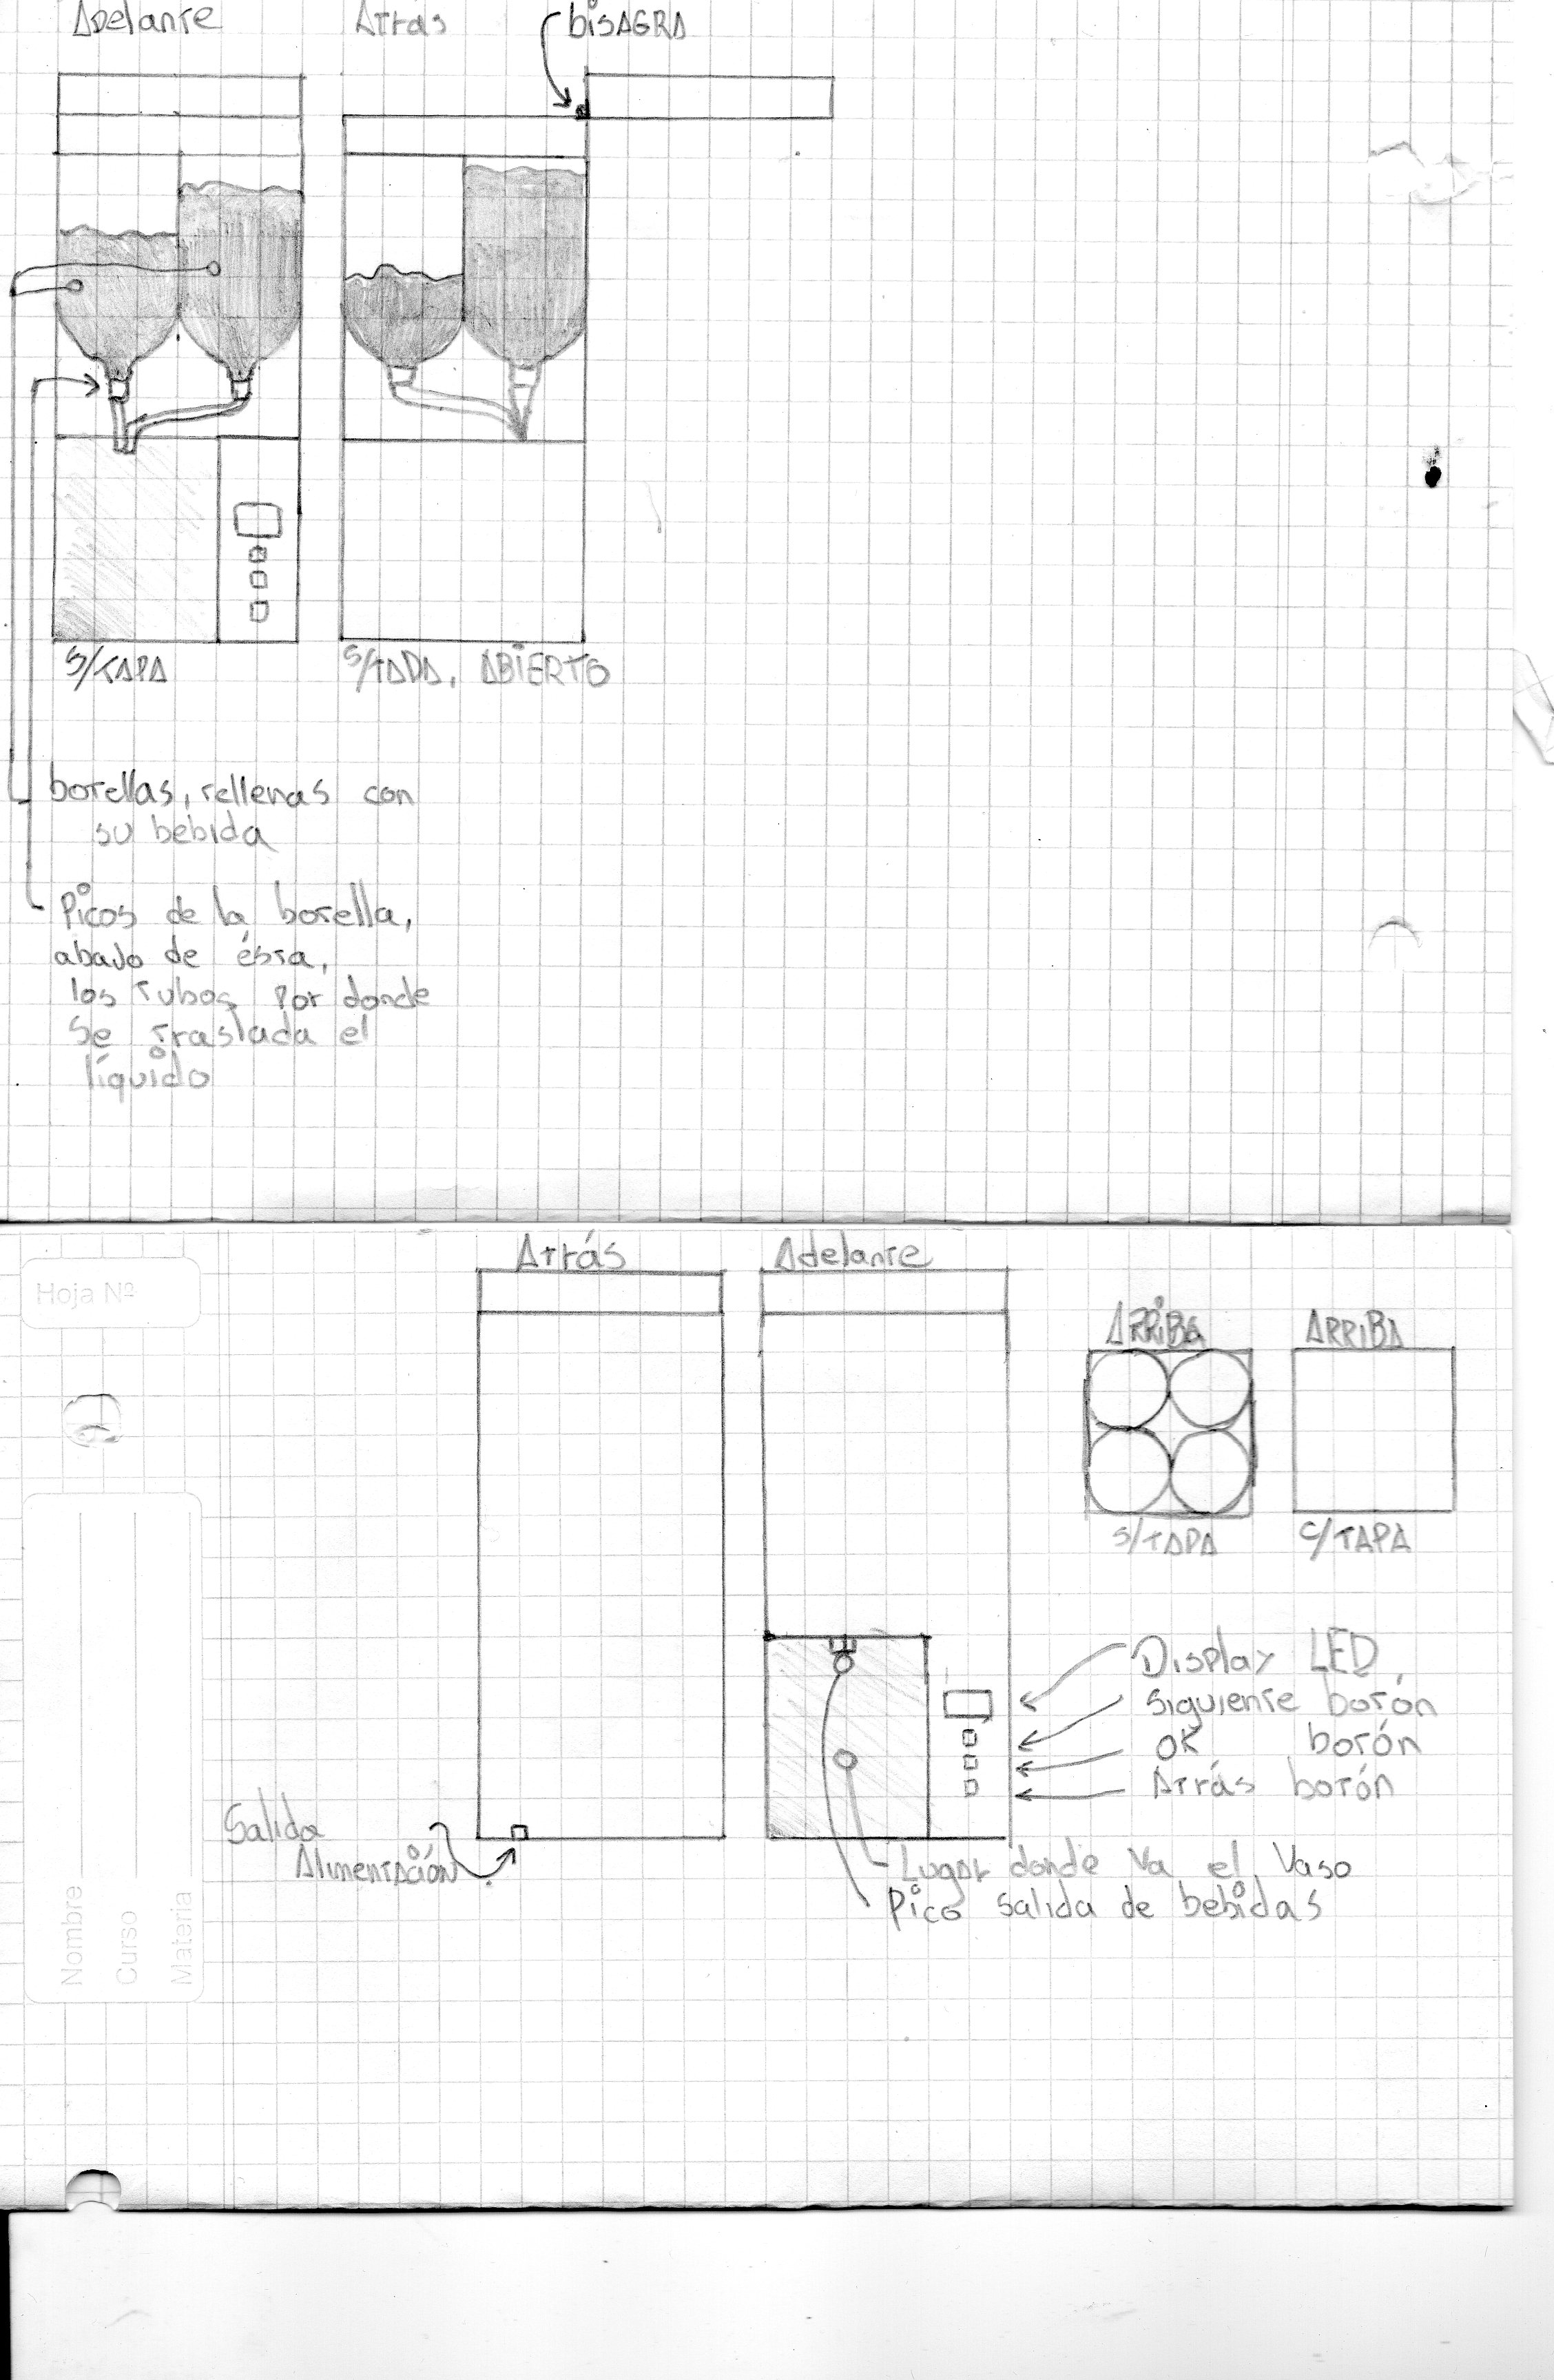 Adelante
Atrás
bisAGRA
S/TAPA
S/TAPA, ABiERTO
botellas, rellenas con
su bebida
Picos de la botella,
abajo de ésta,
los tubos por donde
se traslada el
líquido
Hoja Nº
Atrás
Adelante
ARRiBA
ARRiBA
S/TAPA
C/TAPA
Display LED
Siguiente botón
OK botón
Atrás botón
Salida
Alimentación
Lugar donde va el Vaso
Pico salida de bebidas
Nombre
Curso
Materia